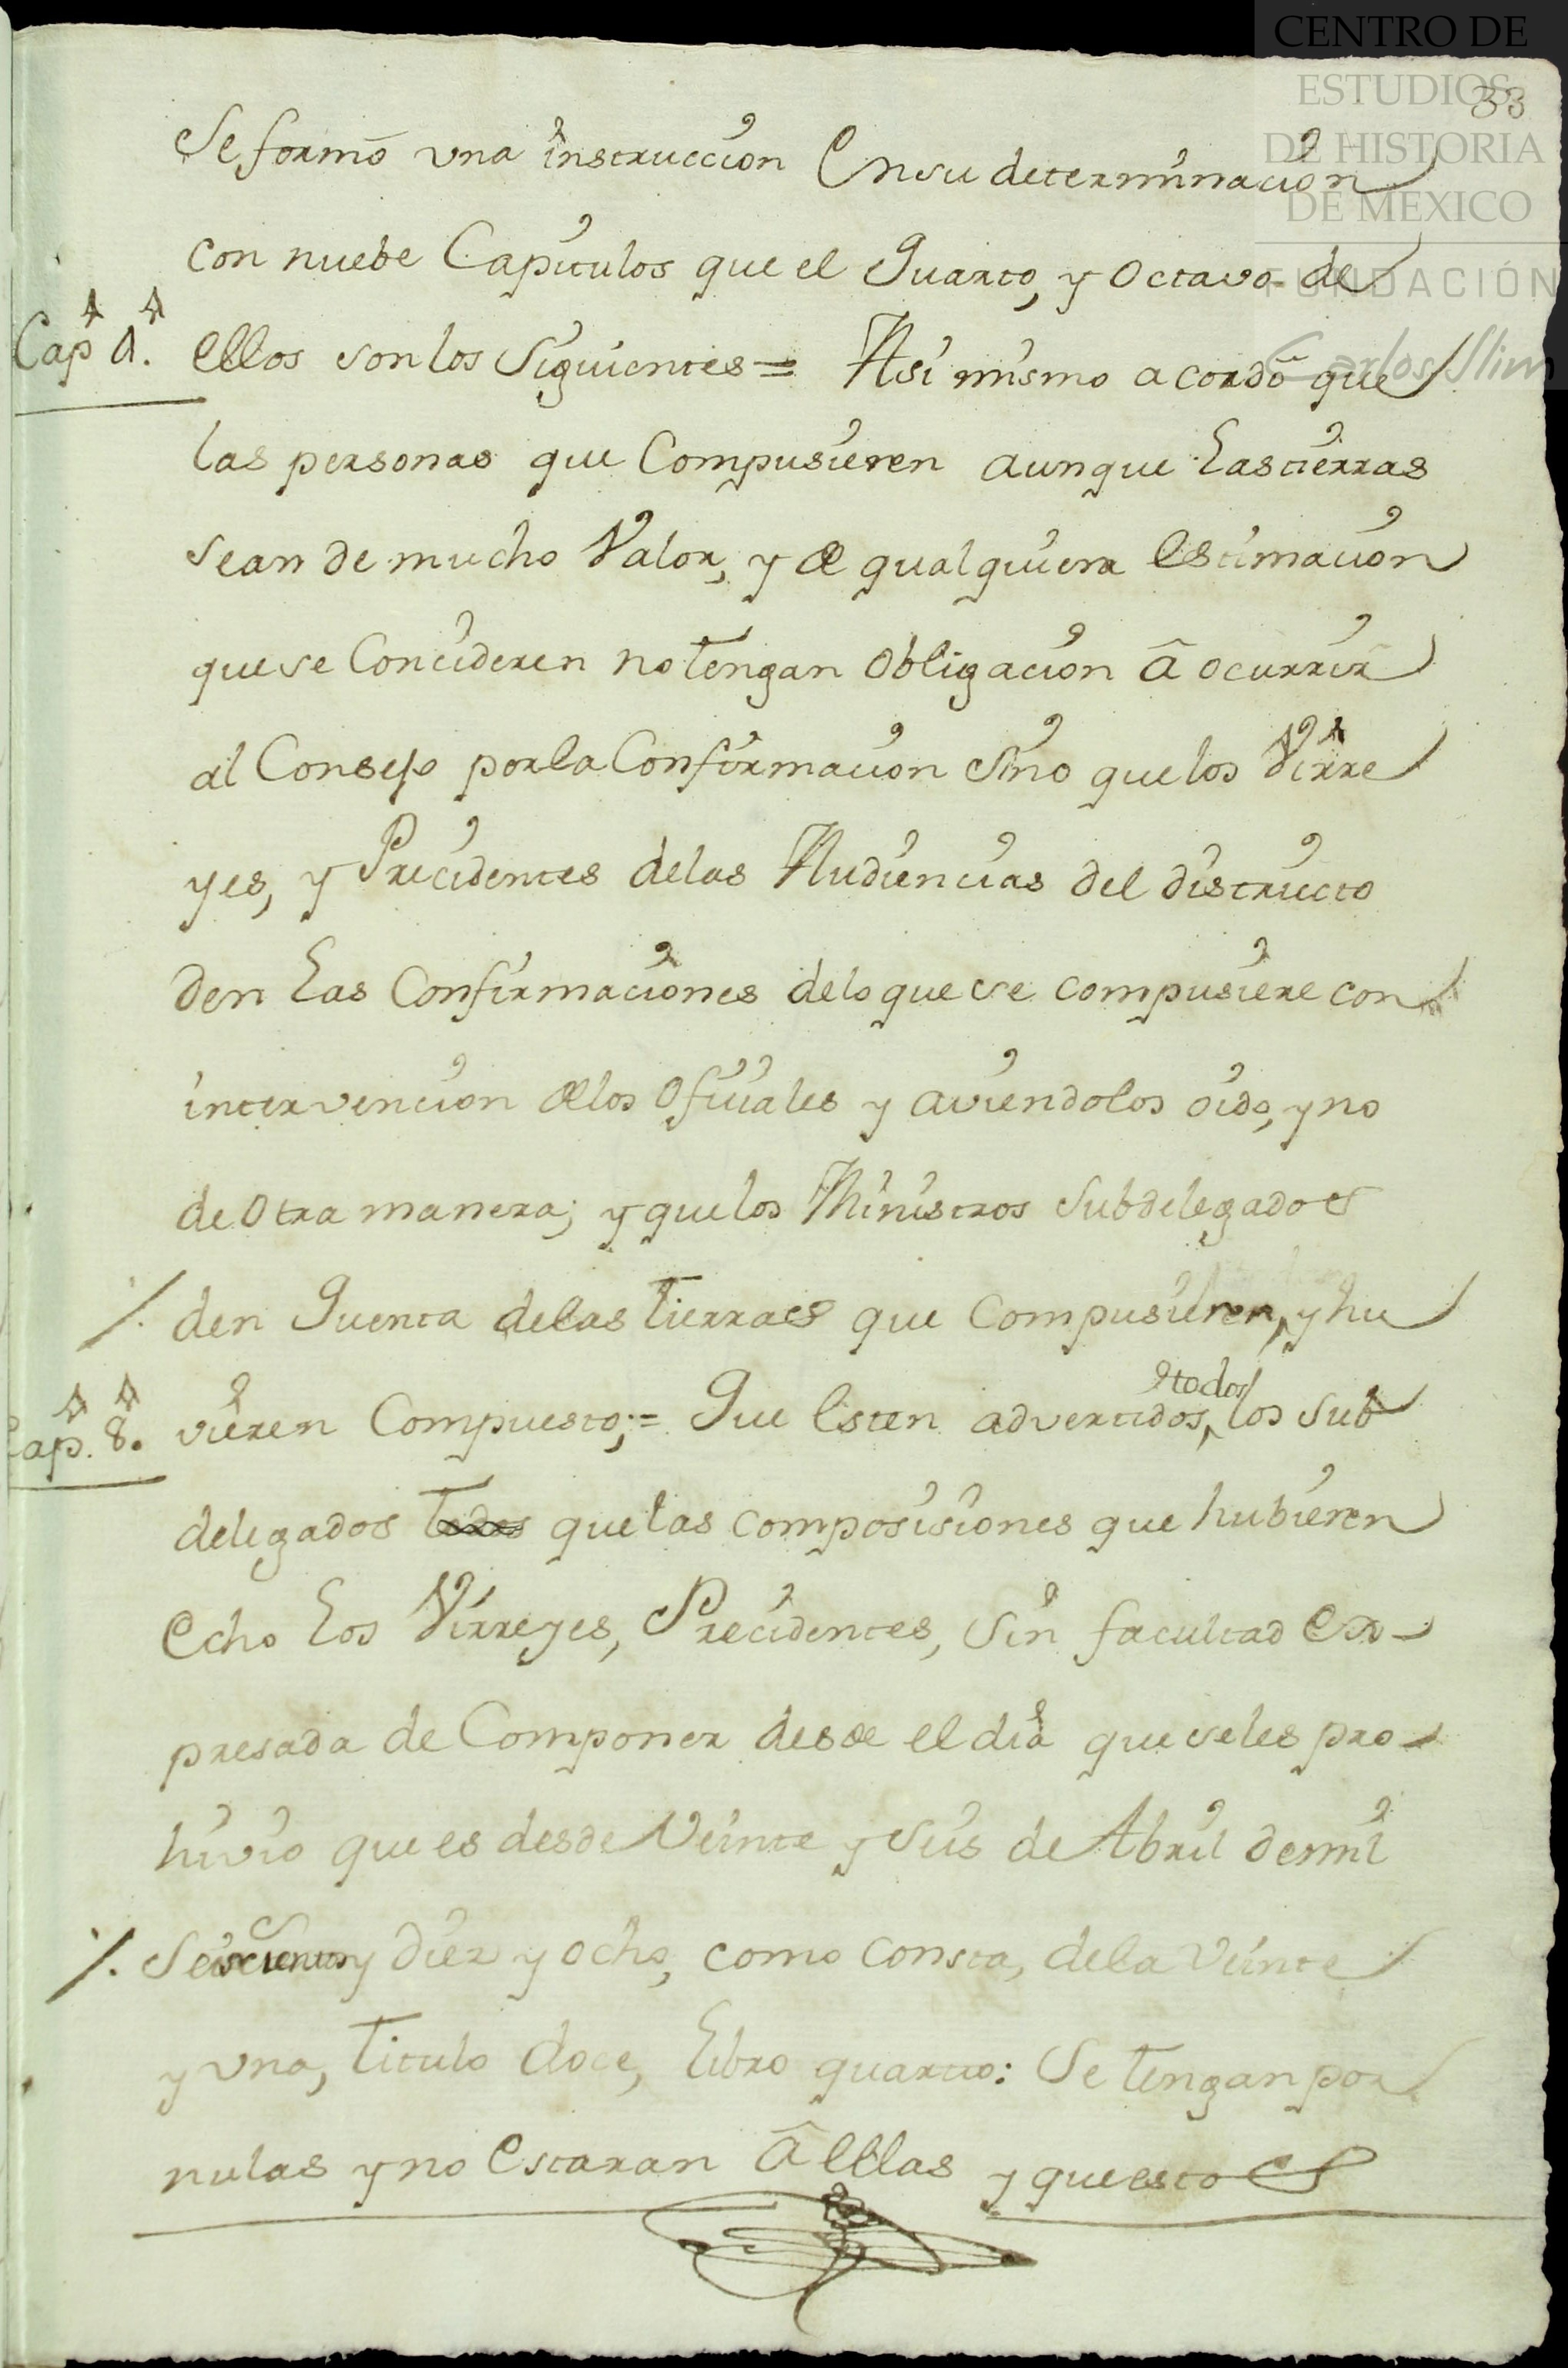 CENTRO DE
ESTUDIOS
DE HISTORIA
DE MEXICO
FUNDACIÓN
Carlos Slim
33
Se formó una instruccion En su determinacion
con nuebe Capitulos que el Quarto, y Octavo de
Cap 4. ellos son los Siguientes = Asi mismo acordó que
las personas que Compusieren aunque Las tierras
sean de mucho Valor, y de qualquiera estimacion
que se Concideren no tengan obligacion â ocurrir
al Consejo por la Confirmacion Sino que los Virre
yes, y Precidentes de las Audiencias del districto
den Las Confirmaciones de lo que se compusiere con
intervencion de los Oficiales y aviendolos oido, y no
de otra manera; y que los Ministros Subdelegados
/. den Quenta de las tierras que compusieren, y hu
Cap. 8. vieren Compuesto; = Que esten advertidos, todos los Sub
delegados todos que las composisiones que hubieren
echo Los Virreyes, Precidentes, Sin facultad ex-
presada de Componer desde el dia que se les pro-
hivio que es desde Veinte y seis de Abril de mil
/. Seiscientos y diez y ocho, como consta, de la Veinte
y una, titulo doce, Libro quarto: Se tengan por
nulas y no estaran â ellas y que esto